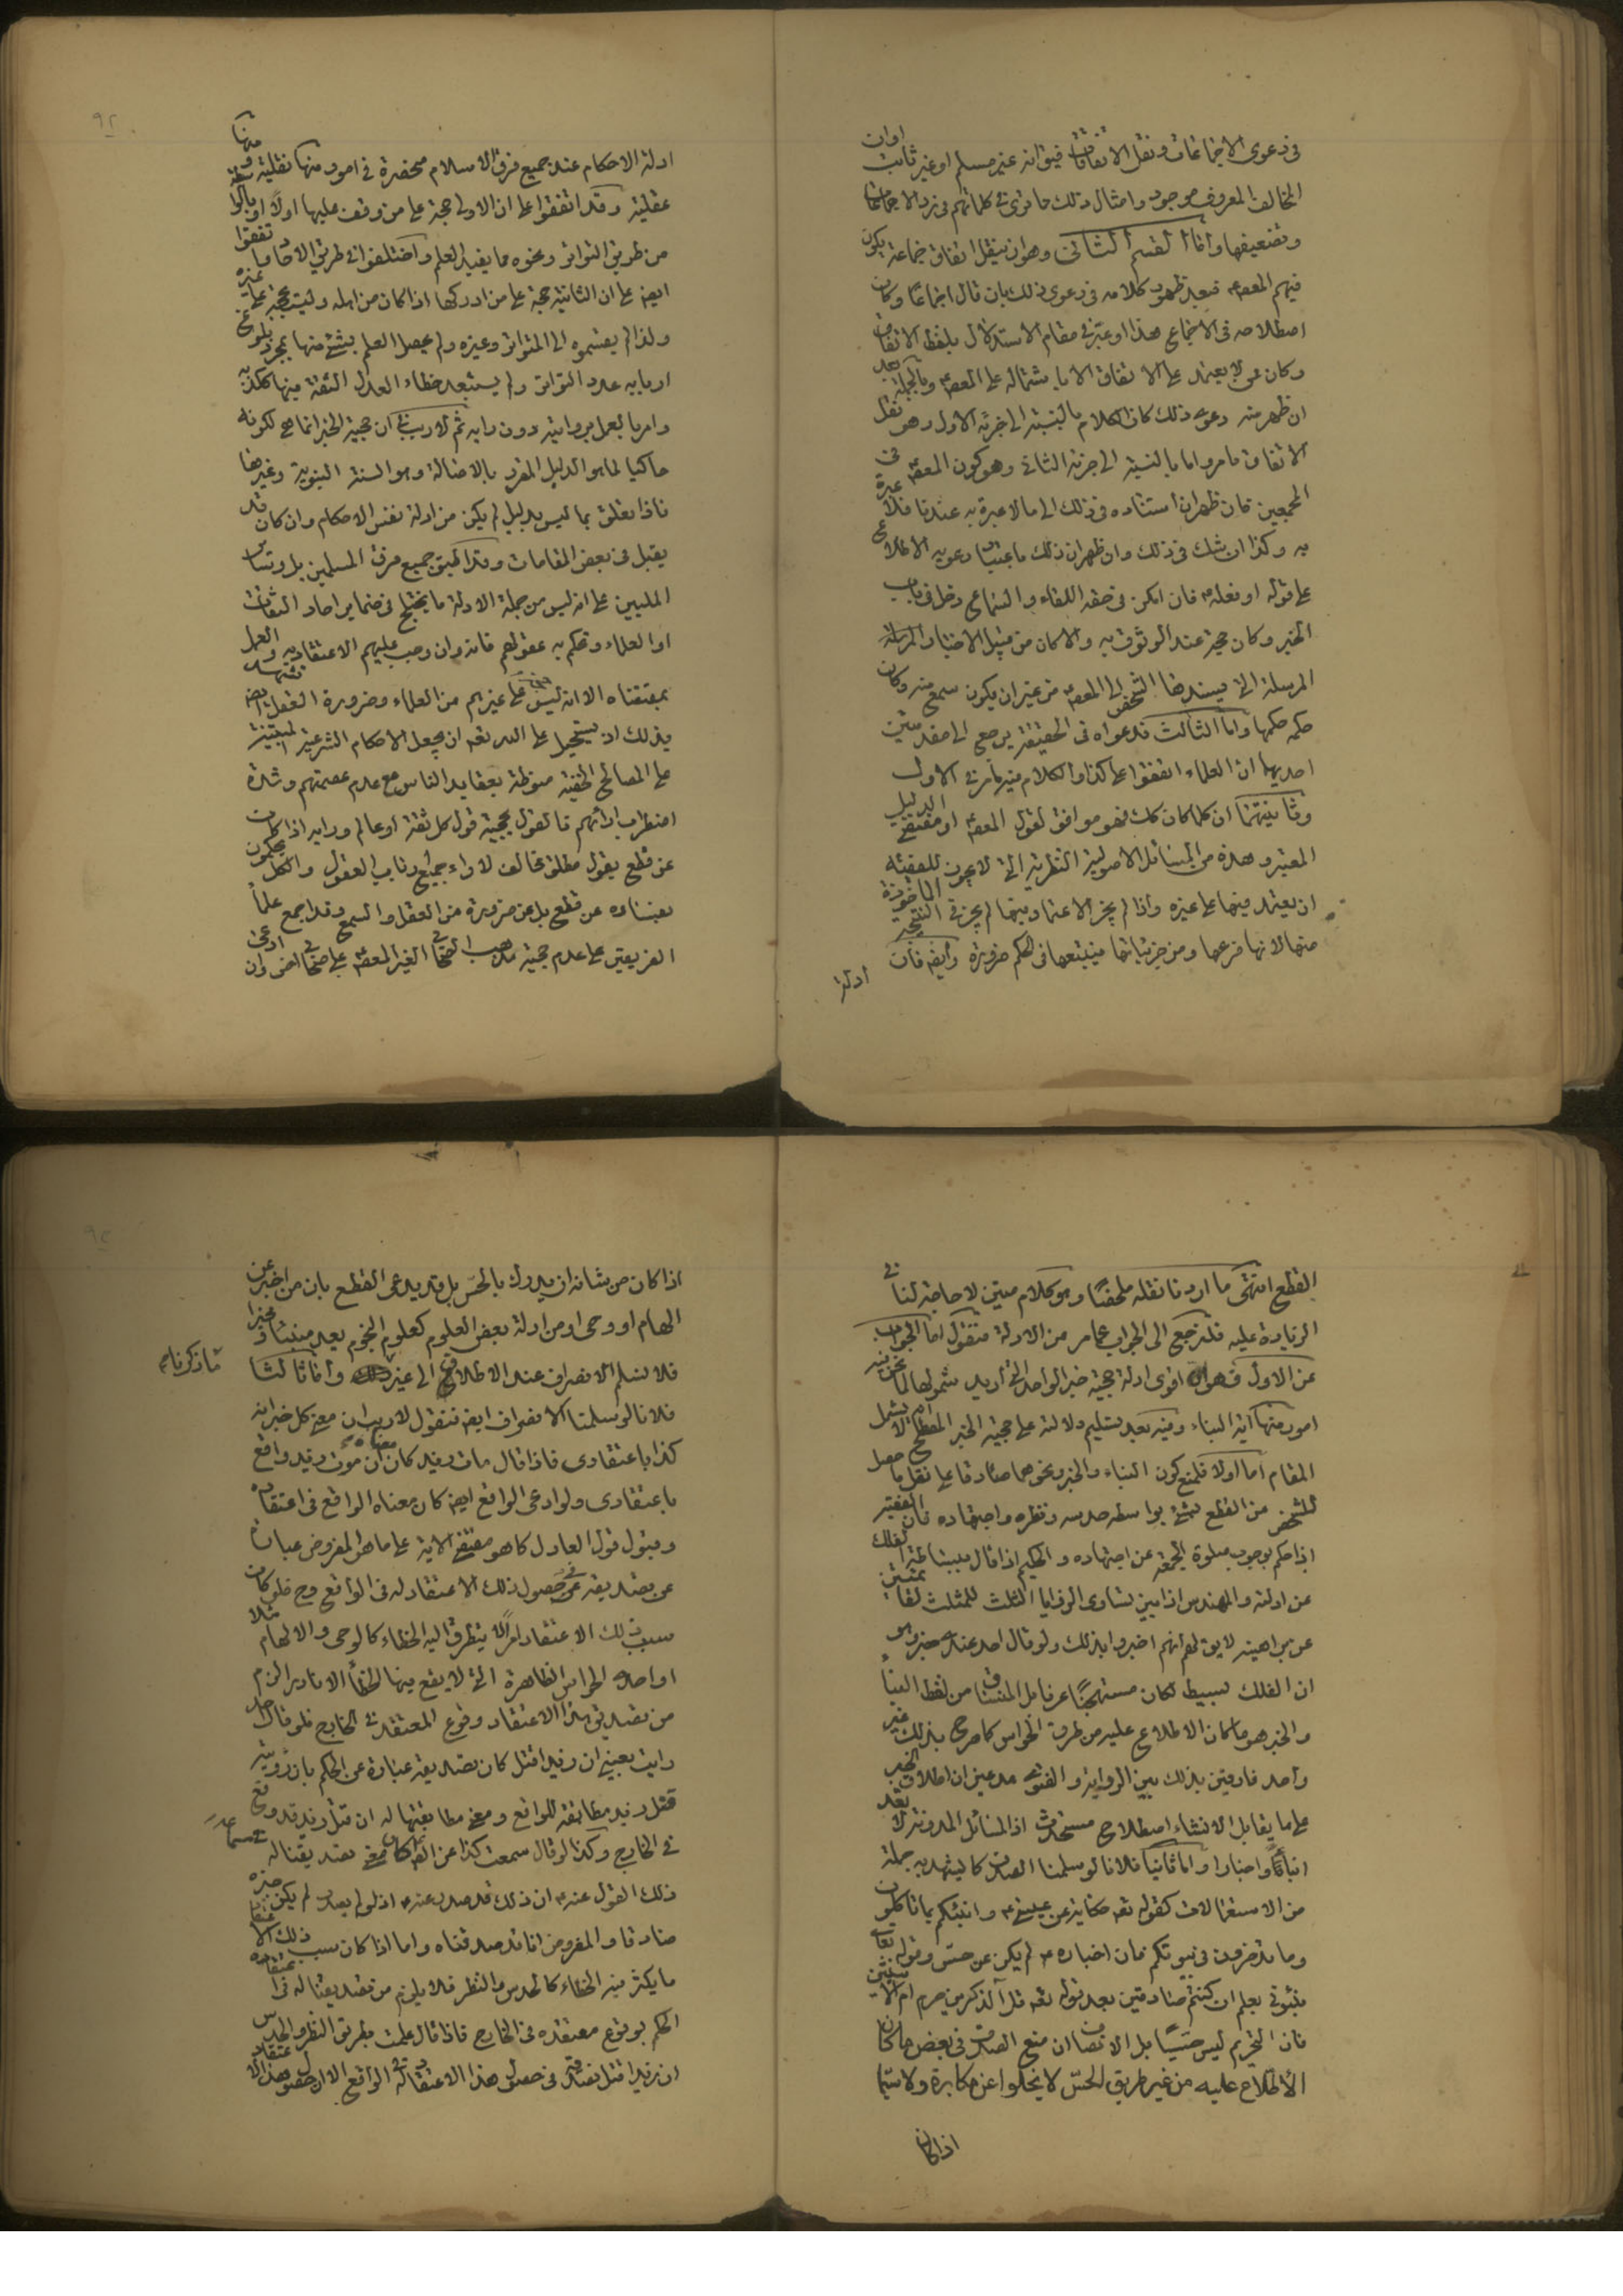 في دعوى الاجماعات ونقل الاتفاقات فيق انه غير مسلم او غير ثابت او ان
المخالف المعروف موجود وامثال ذلك ما ترى في كلماتهم في رد الاجماعات
وتضعيفها واما القسم الثاني وهو ان ينقل اتفاق جماعة يكون
فيهم المعصوم فبعد ظهور كلامه في دعوى ذلك بان قال اجماعا وكان
اصطلاحه في الاجماع هذا او عبر في مقام الاستدلال بلفظ الاتفاق
وكان ممن لا يعتمد على الاتفاق الا باشتماله على المعصوم وبالجملة بعد
ان ظهر منه دعوى ذلك كان الكلام بالنسبة الى جزئه الاول وهو نقل
الاتفاق ما مر واما بالنسبة الى جزئه الثاني وهو كون المعصوم في
المجمعين فان ظهر ان استناده في ذلك الى ما لا عبرة به عندنا فلا عبرة
به وكذا ان شك في ذلك وان ظهر ان ذلك باعتبار دعويه الاطلاع
على قوله او فعله فان امكن في حقه اللقاء والسماع دخل في باب
الخبر وكان حجة عند الوثوق به والا كان من قبيل الاخبار المرسلة
المرسلة التي يسندها الشخص الى المعصوم من غير ان يكون سمع منه وكان
حكمه حكمها واما الثالث فدعواه في الحقيقة يرجع الى مقدمتين
احديهما ان العلماء اتفقوا على كذا والكلام فيه ما مر في الاول
وثانيتهما ان كلما كان كك فهو موافق لقول المعصوم او مقتضى الدليل
المعتبر وهذه من المسائل الاصولية النظرية التي لا يجوز للفقيه
ان يعتمد فيها على غيره واذا لم يجز الاعتماد فيها لم يجز في النتيجة الماخوذة
منها لانها فرعها ومن جزئياتها فيتبعها في الحكم ضرورة وايضا فان
ادلة
ادلة الاحكام عند جميع فرق الاسلام منحصرة في امور منها نقلية ومنها
عقلية وقد اتفقوا على ان الاولى حجة على من وقف عليها اولا او بالواسطة
من طريق التواتر ونحوه مما يفيد العلم واختلفوا في طريق الاحاد واتفقوا
ايضا على ان الثانية حجة على من ادركها اذا كان من اهله وليست بحجة على غيره
ولذا لم يقسموه الى المتواتر وغيره ولم يحصل العلم بشئ منها بمجرد بلوغ
اربابه عدد التواتر ولم يستبعد خطاء العدل الثقة فيها ككذبه
وامر بالعمل بروايته دون رايه ثم لا ريب في ان حجية الخبر انما هي لكونه
حاكيا لما هو الدليل المقرر بالاصالة وهو السنة النبوية وغيرها
فاذا تعلق بما ليس بدليل لم يكن من ادلة نفس الاحكام وان كان قد
يقبل في بعض المقامات وقد اطبق جميع فرق المسلمين بل وسائر
المليين على انه ليس من جملة الادلة ما يختلج في ضماير احاد الثقات
او العلماء وتحكم به عقولهم فانه وان وجب عليهم الاعتقاد به والعمل
بمقتضاه الا انه ليس حجة على غيرهم من العلماء وضرورة العقل ايضا تشهد
بذلك اذ يستحيل على الله تعالى ان يجعل الاحكام الشرعية المبتنية
على المصالح الخفية منوطة بعقايد الناس مع عدم عصمتهم وشدة
اضطراب ارائهم فالقول بحجية قول كل ثقة او عالم ورايه اذا كان
عن قطع يقول مطلق مخالف لاراء جميع ارباب العقول والكل يحكمون
بفساده عن قطع بل عن ضرورة من العقل والسمع وقد اجمع علماء
الفريقين على عدم حجية مذهب الصحابي الغير المعصوم على صحابي اخر وان ادعى
القطع انتهى ما اردنا نقله ملخصا وهو كلام متين لا حاجة لنا في
الزيادة عليه فلنرجع الى الجواب عما مر من الادلة فنقول اما الجواب
عن الاول فهو ان اقوى ادلة حجية خبر الواحد التي اريد شمولها لما نحن فيه
امور منها آية النباء وفيه بعد تسليم دلالته على حجية الخبر المصطلح لا يشمل
المقام اما اولا فلمنع كون النباء والخبر ونحوهما صادقا على نقل ما حصل
للشخص من القطع بشئ بواسطة حدسه ونظره واجتهاده فان الفقيه
اذا حكم بوجوب صلوة الجمعة عن اجتهاده والحكيم اذا قال ببساطة الفلك
عن ادلته والمهندس اذا بين تساوي الزوايا الثلث للمثلث لقائمتين
عن براهينه لا يق لهم انهم اخبروا بذلك ولو قال احد عندي خبر وهو
ان الفلك بسيط لكان مستهجنا عرفا بل المنساق من لفظ النباء
والخبر هو ما كان الاطلاع عليه من طرق الحواس كما صرح بذلك غير
واحد فارقين بذلك بين الرواية والفتوى مدعين ان اطلاق الخبر
على ما يقابل الانشاء اصطلاح مستحدث اذ المسائل المدونة لا تعد
انباء واخبارا واما ثانيا فلانا لو سلمنا الصدق كما يشهد به جملة
من الاستعمالات كقوله تعالى حكاية عن عيسى وانبئكم بما تاكلون
وما تدخرون في بيوتكم فان اخباره لم يكن عن حس وقوله تعالى
نبئوني بعلم ان كنتم صادقين بعد قوله تعالى قل آلذكرين حرم ام الانثيين
فان التحريم ليس حسيا بل الانصاف ان منع الصدق في بعض ما كان
الاطلاع عليه من غير طريق الحس لا يخلوا عن مكابرة ولا سيما
اذا كان
اذا كان من شانه ان يدرك بالحس بل قد يدعى القطع بان من اخبر عن
الهام او وحي او من ادلة بعض العلوم كعلوم النجوم يعد منبئا ومخبرا
فلا نسلم الانصراف عند الاطلاق الى غير ما ذكرناه واما ثالثا
فلانا لو سلمنا الانصراف ايضا فنقول لا ريب ان معنى كل خبر انه
كذا باعتقادي فاذا قال مات زيد كان معناه ان موت زيد واقع
باعتقادي ولو ادعى الواقع ايضا كان معناه الواقع في اعتقاده
وقبول قول العادل كما هو مقتضى الاية على ما هو المفروض عبارة
عن تصديقه في حصول ذلك الاعتقاد له في الواقع وح فلو كان
سبب ذلك الاعتقاد امرا لا يتطرق اليه الخطاء كالوحي والالهام مثلا
او احدى الحواس الظاهرة التي لا يقع فيها الخطأ الا نادرا لزم
من تصديق هذا الاعتقاد وقوع المعتقد في الخارج فلو قال احد
رايت بعيني ان زيدا قتل كان تصديقه عبارة عن الحكم بان رؤيته
قتل زيد مطابقة للواقع ومعنى مطابقتها له ان قتل زيد قد وقع
في الخارج وكذا لو قال سمعت كذا عن الامام كان معنى تصديقنا له سماعه
ذلك القول عنه ان ذلك قد صدر عنه اذ لو لم يصدر لم يكن خبره
صادقا والمفروض انا قد صدقناه واما اذا كان سبب ذلك الاعتقاد
ما يكثر فيه الخطاء كالحدس والنظر فلا يلزم من تصديقنا له في اعتقاده
الحكم بوقوع معتقده في الخارج فاذا قال علمت بطريق النظر والحدس
ان زيدا قتل نصدق في حصول هذا الاعتقاد له في الواقع الا ان حصول هذا الاعتقاد